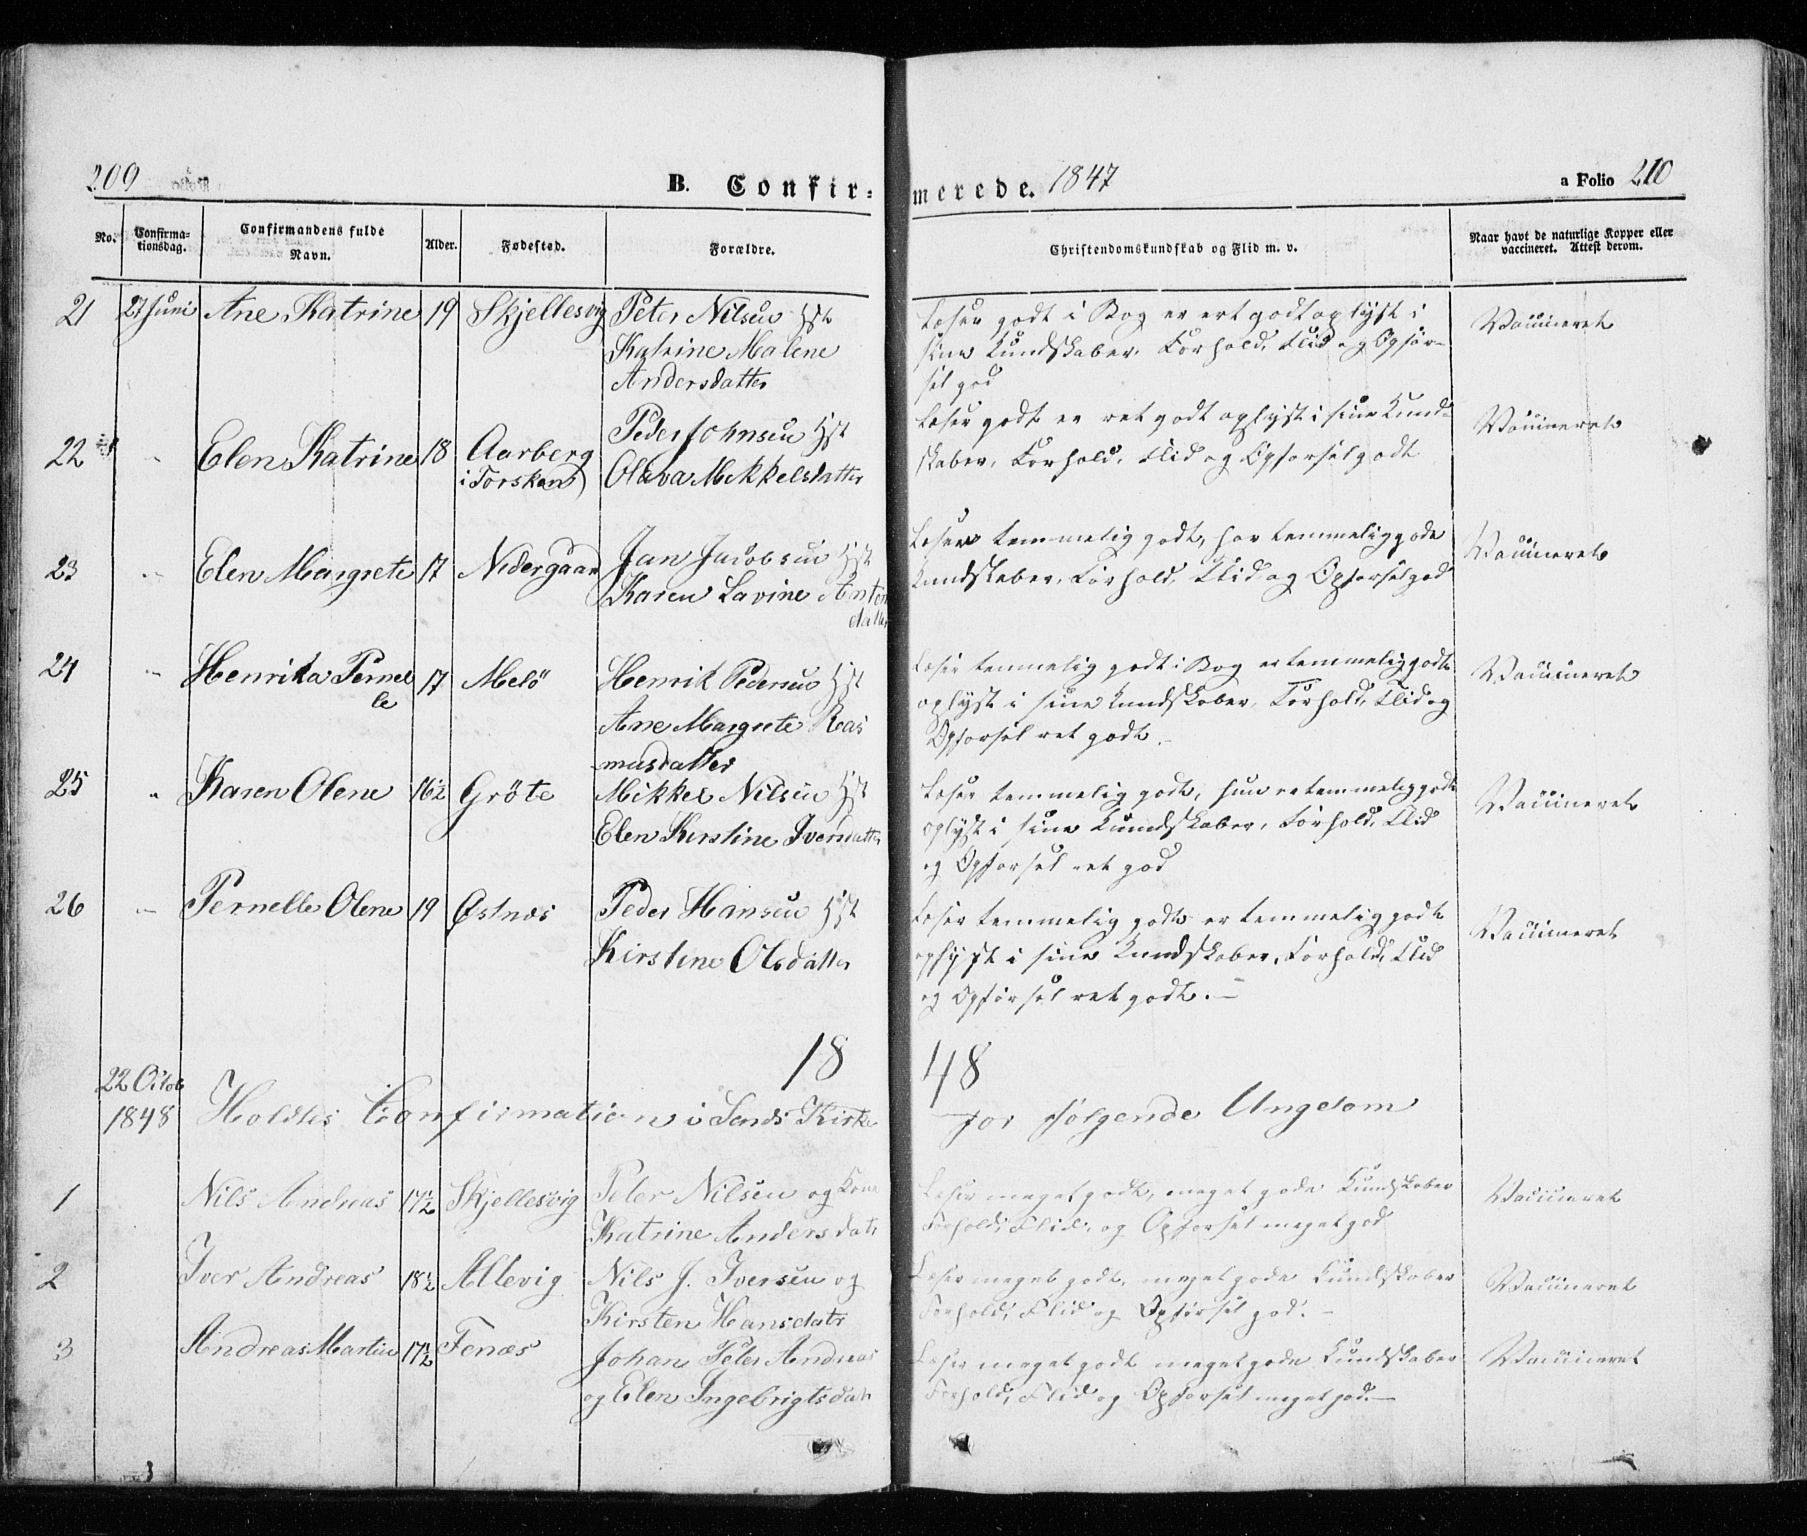 209
B. Confir-
merede. 1847
a Folio 210
No.
Confirma-
tionsdag.
Confirmandens fulde
Navn.
Alder.
Fødested.
Forældre.
Christendomskundskab og Flid m. v.
Naar havt de naturlige Kopper eller
vaccineret. Attest derom.
21 27 Juni Ane Katrine 19 Skjellesvig Peter Nilsen Hst
Katrine Malene
Andersdatter
Læser godt i Bog er ret godt oplyst i
sine Kundskaber. Forhold, Flid og Opfør-
sel god
Vaccineret
22 " Elen Katrine 18 Aarberg
i Torsken
Peder Johnsen Hst
Olava Mekkelsdatter
Læser godt er ret godt oplyst i sine Kund-
skaber, Forhold, Flid og Opførsel godt
Vaccineret
23 " Elen Margrete 17 Nedergaar Jan Jacobsen Hst
Karen Lavine Anton
datter
Læser temmelig godt, har temmelig gode
Kundskaber, Forhold, Flid og Opførsel god
Vaccineret
24 " Henrika Pernel
le
17 Melö Henrik Pedersen Hst
Ane Margrete Ras
musdatter
Læser temmelig godt i Bog er temmelig godt
oplyst i sine Kundskaber, Forhold, Flid og
Opførsel ret godt.
Vaccineret
25 " Karen Olene 16½ Gröte Mikkel Nilsen Hst
Elen Kirstine Iversdatter
Læser temmelig godt, hun er temmelig godt
oplyst i sine Kundskaber, Forhold, Flid
og Opførsel ret god
Vaccineret
26 " Pernelle Olene 19 Østnes Peder Hansen Hst
Kirstine Olsdatter
Læser temmelig godt er temmelig godt
oplyst i sine Kundskaber, Forhold, Flid
og Opførsel ret godt. –
Vaccineret
18 48
22 Octob
1848 Holdtes Confirmation i Sands Kirke for følgende Ungdom
1 Nils Andreas 17½ Skjellesvig Peter Nilsen og Kone
Katrine Andersdatr
Læser meget godt, meget gode Kundskaber
Forhold, Flid, og Opførsel meget god
Vaccineret
2 Iver Andreas 18½ Allevig Nils J. Iversen og
Kirsten Hansdatr
Læser meget godt, meget gode Kundskaber
Forhold, Flid og Opførsel god. –
Vaccineret
3 Andreas Martin 17½ Fenæs Johan Peter Andreas
og Elen Ingebrigtsdatr
Læser meget godt meget gode Kundskaber
Forhold, Flid og Opførsel meget god. –
Vaccineret